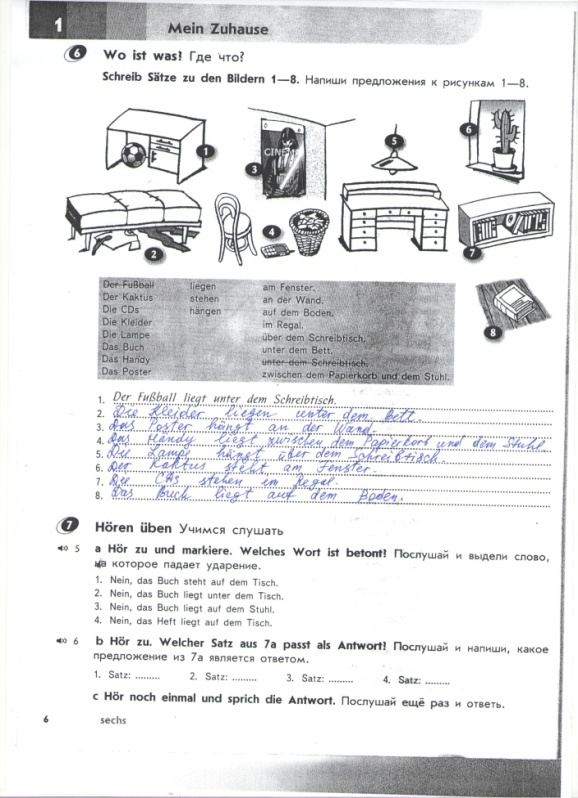 1 Mein Zuhause
6 Wo ist was? Где что?
Schreib Sätze zu den Bildern 1—8. Напиши предложения к рисункам 1—8.
1
CINEMA
3
5
6
2
4
7
8
Der Fußball liegen am Fenster.
Der Kaktus stehen an der Wand.
Die CDs hängen auf dem Boden.
Die Kleider im Regal.
Die Lampe über dem Schreibtisch.
Das Buch unter dem Bett.
Das Handy unter dem Schreibtisch.
Das Poster zwischen dem Papierkorb und dem Stuhl.
1. Der Fußball liegt unter dem Schreibtisch.
2. Die Kleider liegen unter dem Bett.
3. Das Poster hängt an der Wand.
4. Das Handy liegt zwischen dem Papierkorb und dem Stuhl.
5. Die Lampe hängt über dem Schreibtisch.
6. Der Kaktus steht am Fenster.
7. Die CDs stehen im Regal.
8. Das Buch liegt auf dem Boden.
7 Hören üben Учимся слушать
5 a Hör zu und markiere. Welches Wort ist betont? Послушай и выдели слово,
на которое падает ударение.
1. Nein, das Buch steht auf dem Tisch.
2. Nein, das Buch liegt unter dem Tisch.
3. Nein, das Buch liegt auf dem Stuhl.
4. Nein, das Heft liegt auf dem Tisch.
6 b Hör zu. Welcher Satz aus 7a passt als Antwort? Послушай и напиши, какое
предложение из 7a является ответом.
1. Satz: ......... 2. Satz: ......... 3. Satz: ......... 4. Satz: .........
c Hör noch einmal und sprich die Antwort. Послушай ещё раз и ответь.
6 sechs